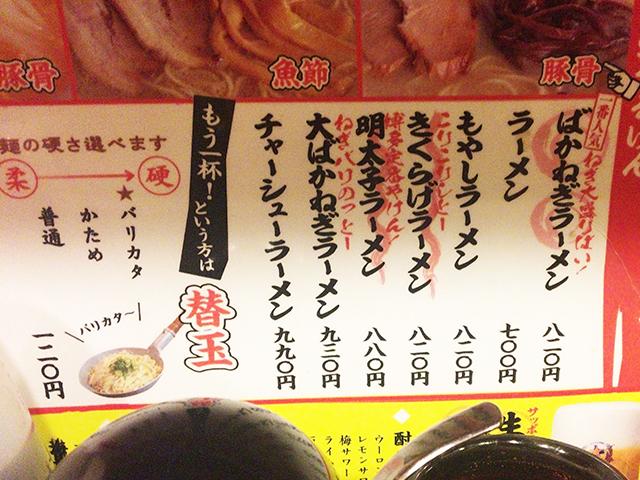 豚骨
魚節
豚骨
一番人気
ねぎ大盛りばい!
ばかねぎラーメン 八二〇円
ラーメン 七〇〇円
もやしラーメン 八二〇円
こりこりしとー
きくらげラーメン 八二〇円
博多定番やけん!
明太子ラーメン 八八〇円
ねぎ八けのっとー
大ばかねぎラーメン 九三〇円
チャーシューラーメン 九九〇円
もう一杯!という方は
替玉
麺の硬さ選べます
柔
硬
★バリカタ
かため
普通
バリカタ〜
一二〇円
サッポ
生
酎
ウーロン
レモンサワ
梅サワー
ライ